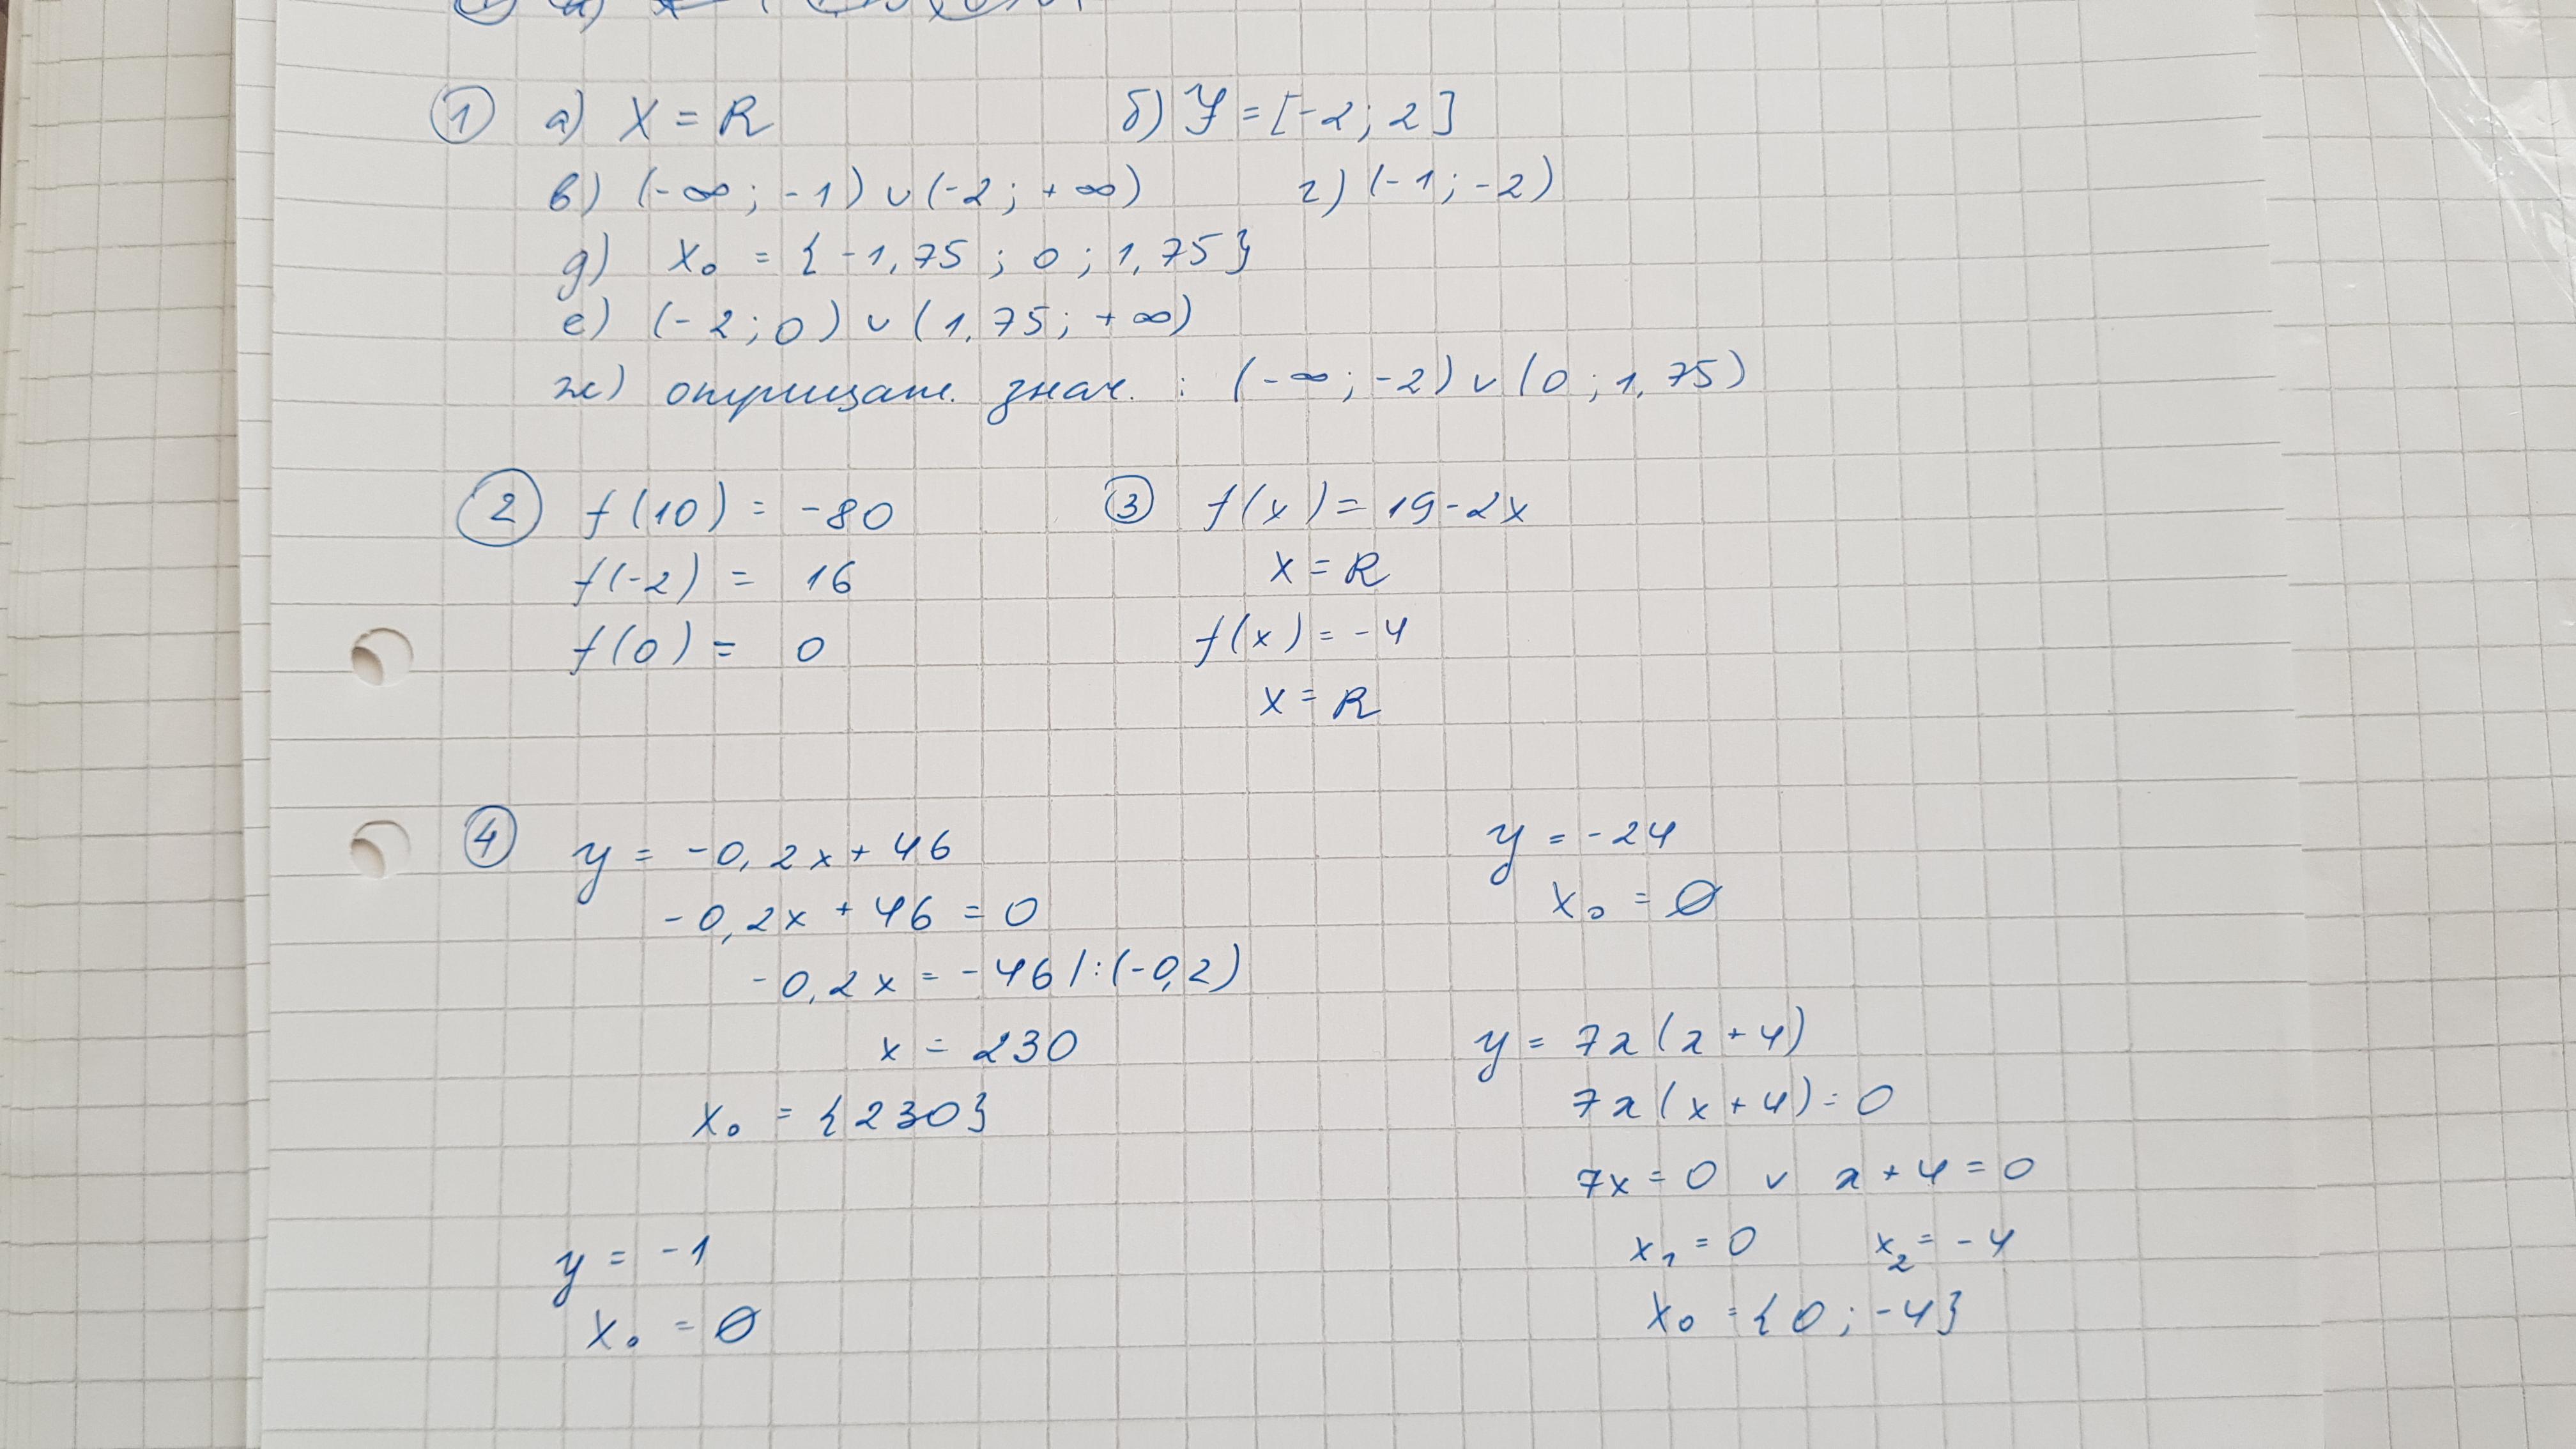 ① а) X = R б) Y = [-2; 2]
в) (-∞; -1) ∪ (-2; +∞) г) (-1; -2)
д) X₀ = {-1,75; 0; 1,75}
е) (-2; 0) ∪ (1,75; +∞)
ж) отрицат. знач. : (-∞; -2) ∪ (0; 1,75)
② f(10) = -80
f(-2) = 16
f(0) = 0
③ f(x) = 19-2x
X = R
f(x) = -4
X = R
④ y = -0,2x + 46
-0,2x + 46 = 0
-0,2x = -46 /:(-0,2)
x = 230
X₀ = {230}
y = -1
X₀ = ∅
y = -24
X₀ = ∅
y = 7x(x+4)
7x(x+4) = 0
7x = 0 ∨ x+4 = 0
x₁ = 0 x₂ = -4
X₀ = {0; -4}